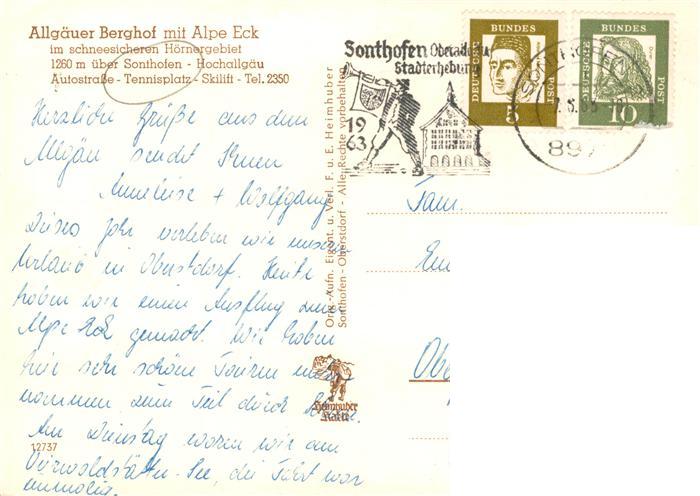 Allgäuer Berghof mit Alpe Eck
im schneesicheren Hörnergebiet
1260 m über Sonthofen - Hochallgäu
Autostraße - Tennisplatz - Skilift - Tel. 2350
Herzliche Grüße aus dem
Allgäu sendet Ihnen
Anneliese + Wolfgang
Dieses Jahr verleben wir unseren
Urlaub in Oberstdorf. Heute
haben wir einen Ausflug zum
Alpe Eck gemacht. Wir haben
hier sehr schöne Touren
nommen zum Teil durch
Am Dienstag waren wir am
Vierwaldstätter-See, die Fahrt war
einmalig.
12737
Orig.-Aufn. Eigent. u. Verl. F. u. E. Heimhuber
Sonthofen - Oberstdorf - Alle Rechte vorbehalten
Heimhuber
Karte
Sonthofen Oberallgäu
Stadterhebung
1963
DEUTSCHE BUNDES POST
5
DEUTSCHE BUNDES POST
10
SONTHOFEN
897
Fam.
Obe